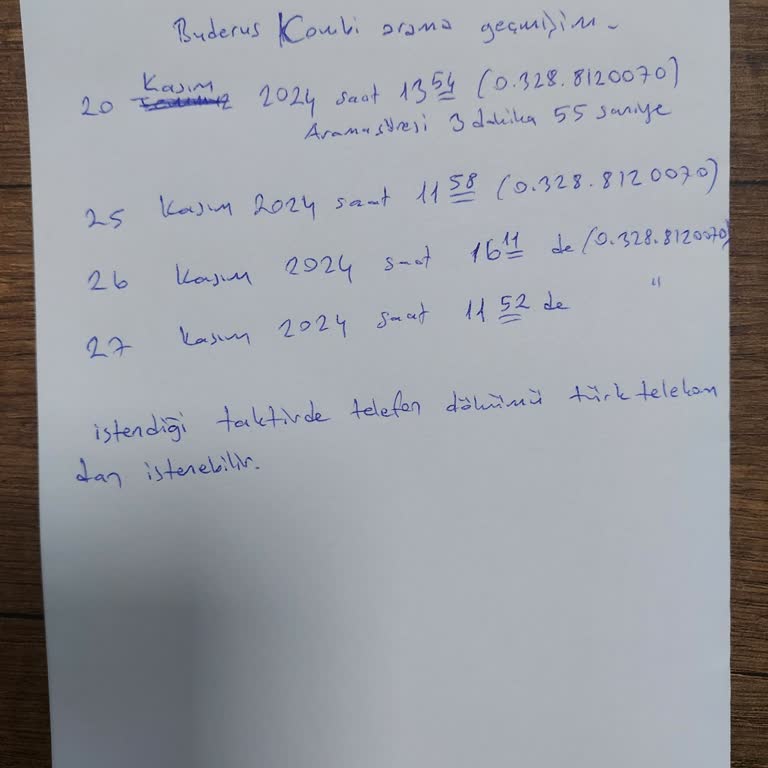 Buderus Kombi arama geçmişim.
Kasım
20 2024 saat 13 54 (0.328.8120070)
Arama süresi 3 dakika 55 saniye
25 Kasım 2024 saat 11 58 (0.328.8120070)
26 Kasım 2024 saat 16 11 de (0.328.8120070)
27 Kasım 2024 saat 11 52 de "
istendiği taktirde telefon dökümü türk telekom
dan istenebilir.